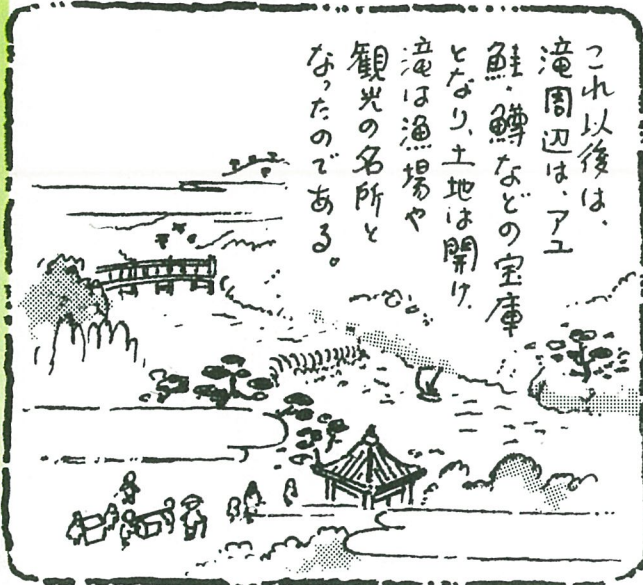 これ以後は、
滝周辺は、アユ
鮭・鱒などの宝庫
となり、土地は開け、
滝は漁場や
観光の名所と
なったのである。